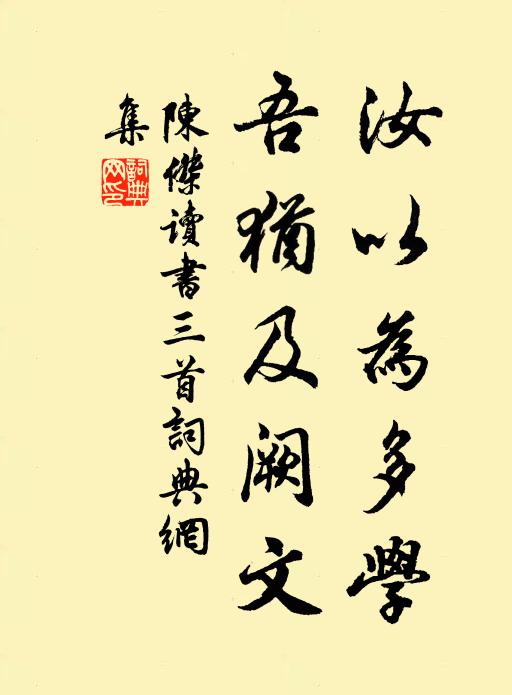 汝以為多學
吾猶及闕文
陳傑讀書三首詞典網
集
詞典網印